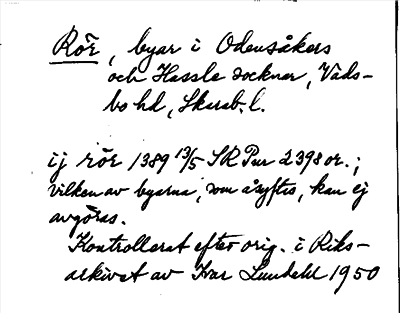 Rör, byar i Odensåkers
och Hassle socknar, Vads-
bo hd, Skarab. l.
ij rör 1389 13/5 SRPur 2398 or. ;
vilken av byarna, som åsyftas, kan ej
avgöras.
Kontrollerat efter orig. i Riks-
arkivet av Ivar Lundahl 1950